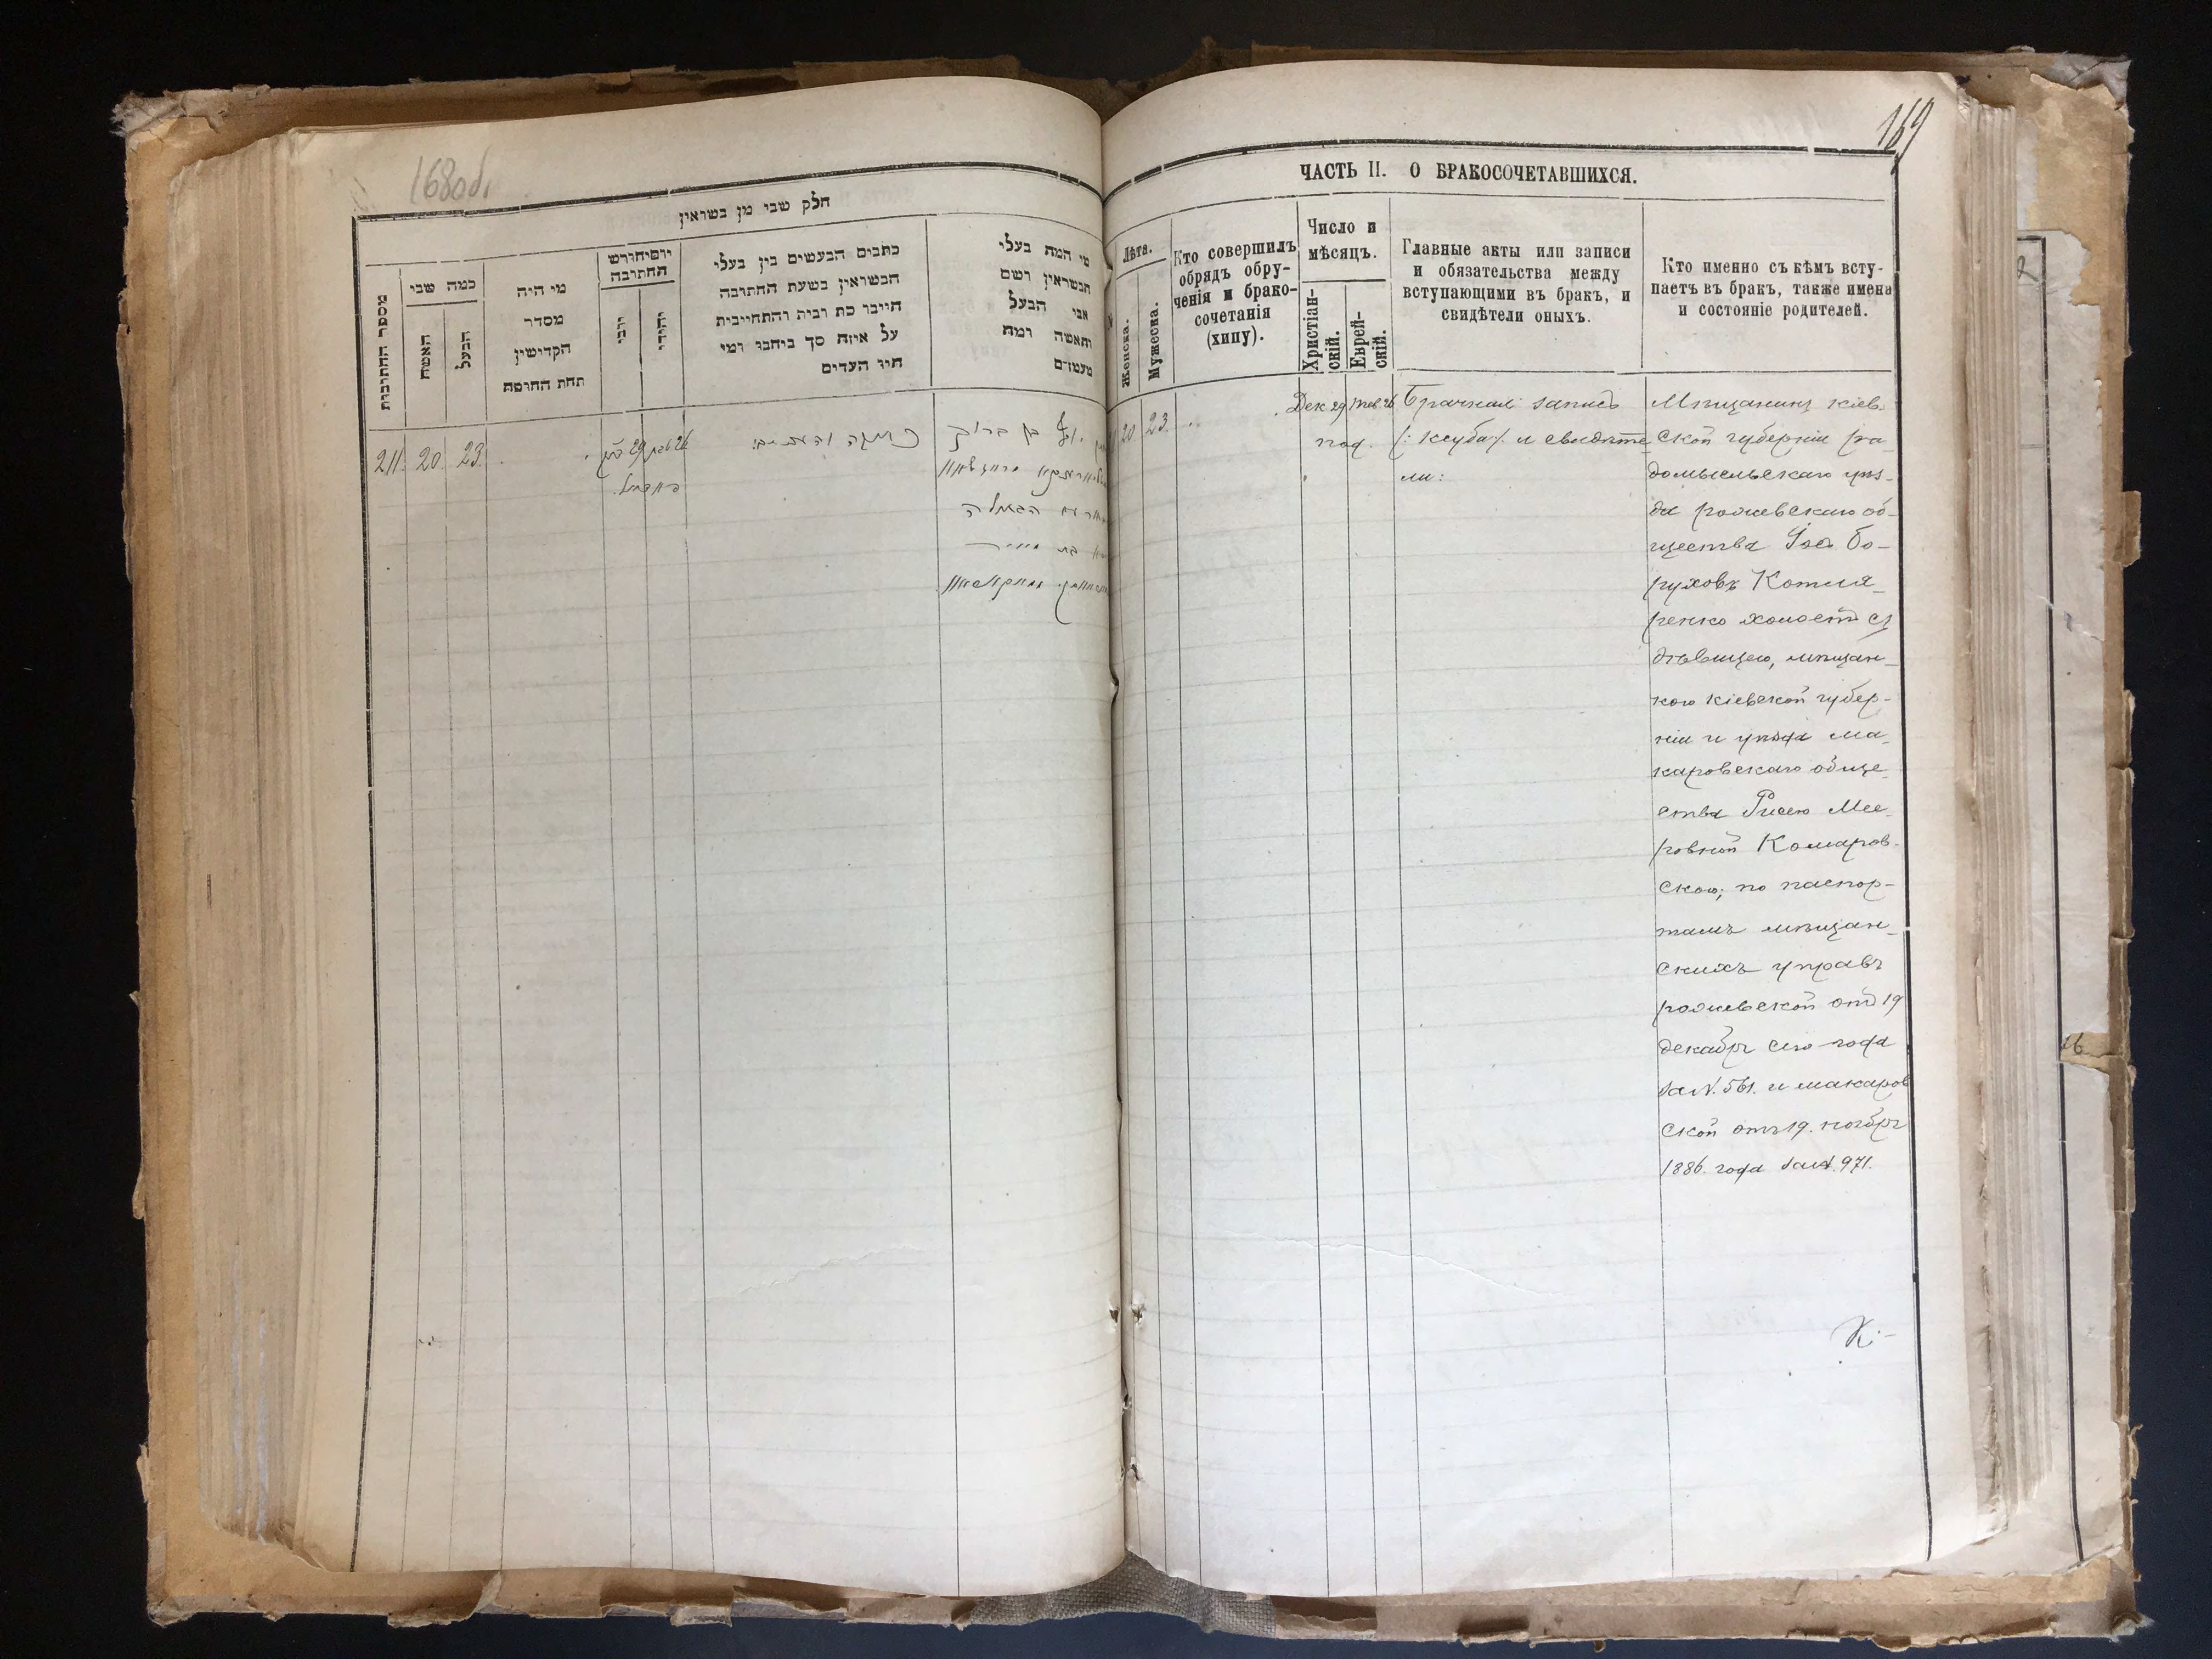 168об.
חלק שני מן נשואין
מספר החתונות
כמה שני
האשה
הבעל
מי היה
מסדר
הקדישין
תחת החופה
יום וחודש
החתונה
יוני
יהודי
כתבים הנעשים בין בעלי
הנשואין בשעת החתונה
חייבו כת רבית והתחייבות
על איזה סך ביחבו ומי
היו העדים
מי המה בעלי
הנשואין ושם
אבי הבעל
והאשה ומה
מעמדם
211. 20. 23.
29
26
כתובה והעדים:
יוסף בן ברוך
בת מאיר
169
ЧАСТЬ II. О БРАКОСОЧЕТАВШИХСЯ.
Лѣта.
Женска.
Мужеска.
Кто совершилъ
обрядъ обру-
ченія и брако-
сочетанія
(хипу).
Число и
мѣсяцъ.
Христіан-
скій.
Еврей-
скій.
Главные акты или записи
и обязательства между
вступающими въ бракъ, и
свидѣтели оныхъ.
Кто именно съ кѣмъ всту-
паетъ въ бракъ, также имена
и состояніе родителей.
20 23
Дек 29 Тев 26
Брачная запись
/: ксуба/. и свидѣте
ли:
Мѣщанинъ кіев-
ской губерніи ра-
домысльскаго уѣз-
да рожевскаго об-
щества Іось Бо-
руховъ Котля-
ренко холостъ съ
дѣвицею, мѣщан-
кою кіевской губер-
ніи и уѣзда ма-
каровскаго обще-
ства Рисею Мее-
ровной Комаров-
скою; по паспор-
тамъ мѣщан-
скихъ управъ
рожевской отъ 19
декабря сего года
за N. 561. и макаров
ской отъ 19. ноября
1886. года за N. 971.
К:-